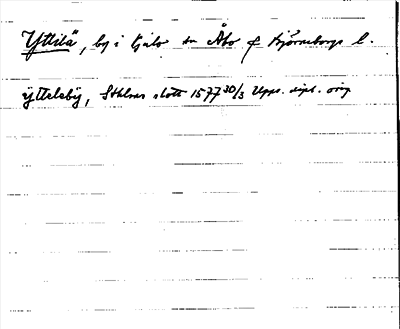 Yttilä, by i Kjulo sn Åbo & Björneborgs l.
ÿttelsbÿ, Sthlms slott 1577 30/3 Upps. dipl. orig